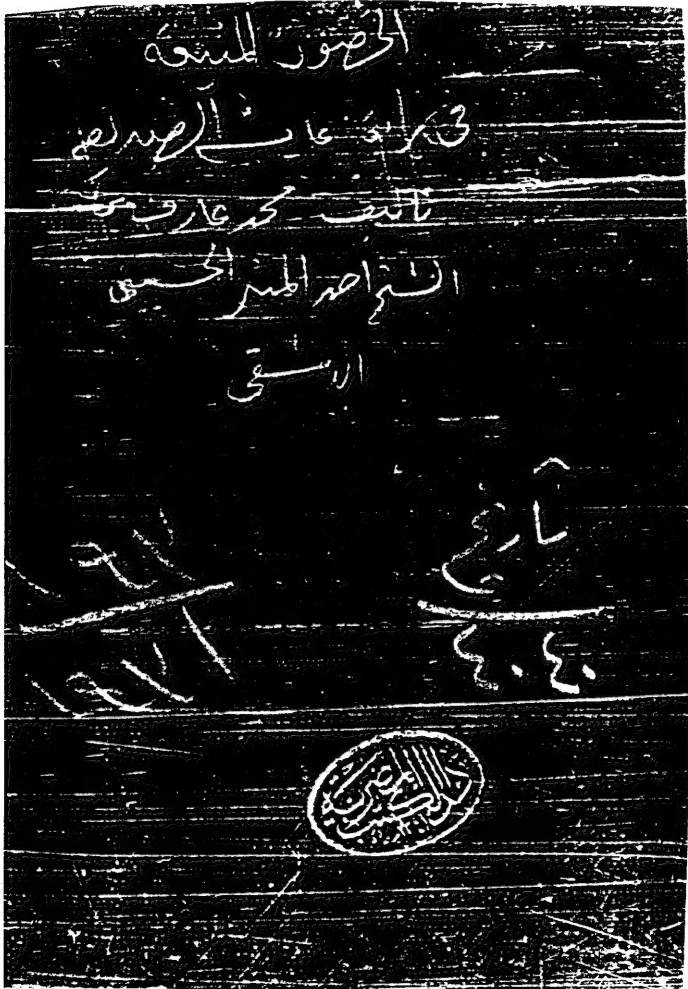 الحصون المنيعه
في براءة عائشة الصديقة
تأليف محمد عارف
الشيخ احمد المنير الحسيني
الدمشقي
تاريخ
٤٠٤٠
دار الكتب المصرية